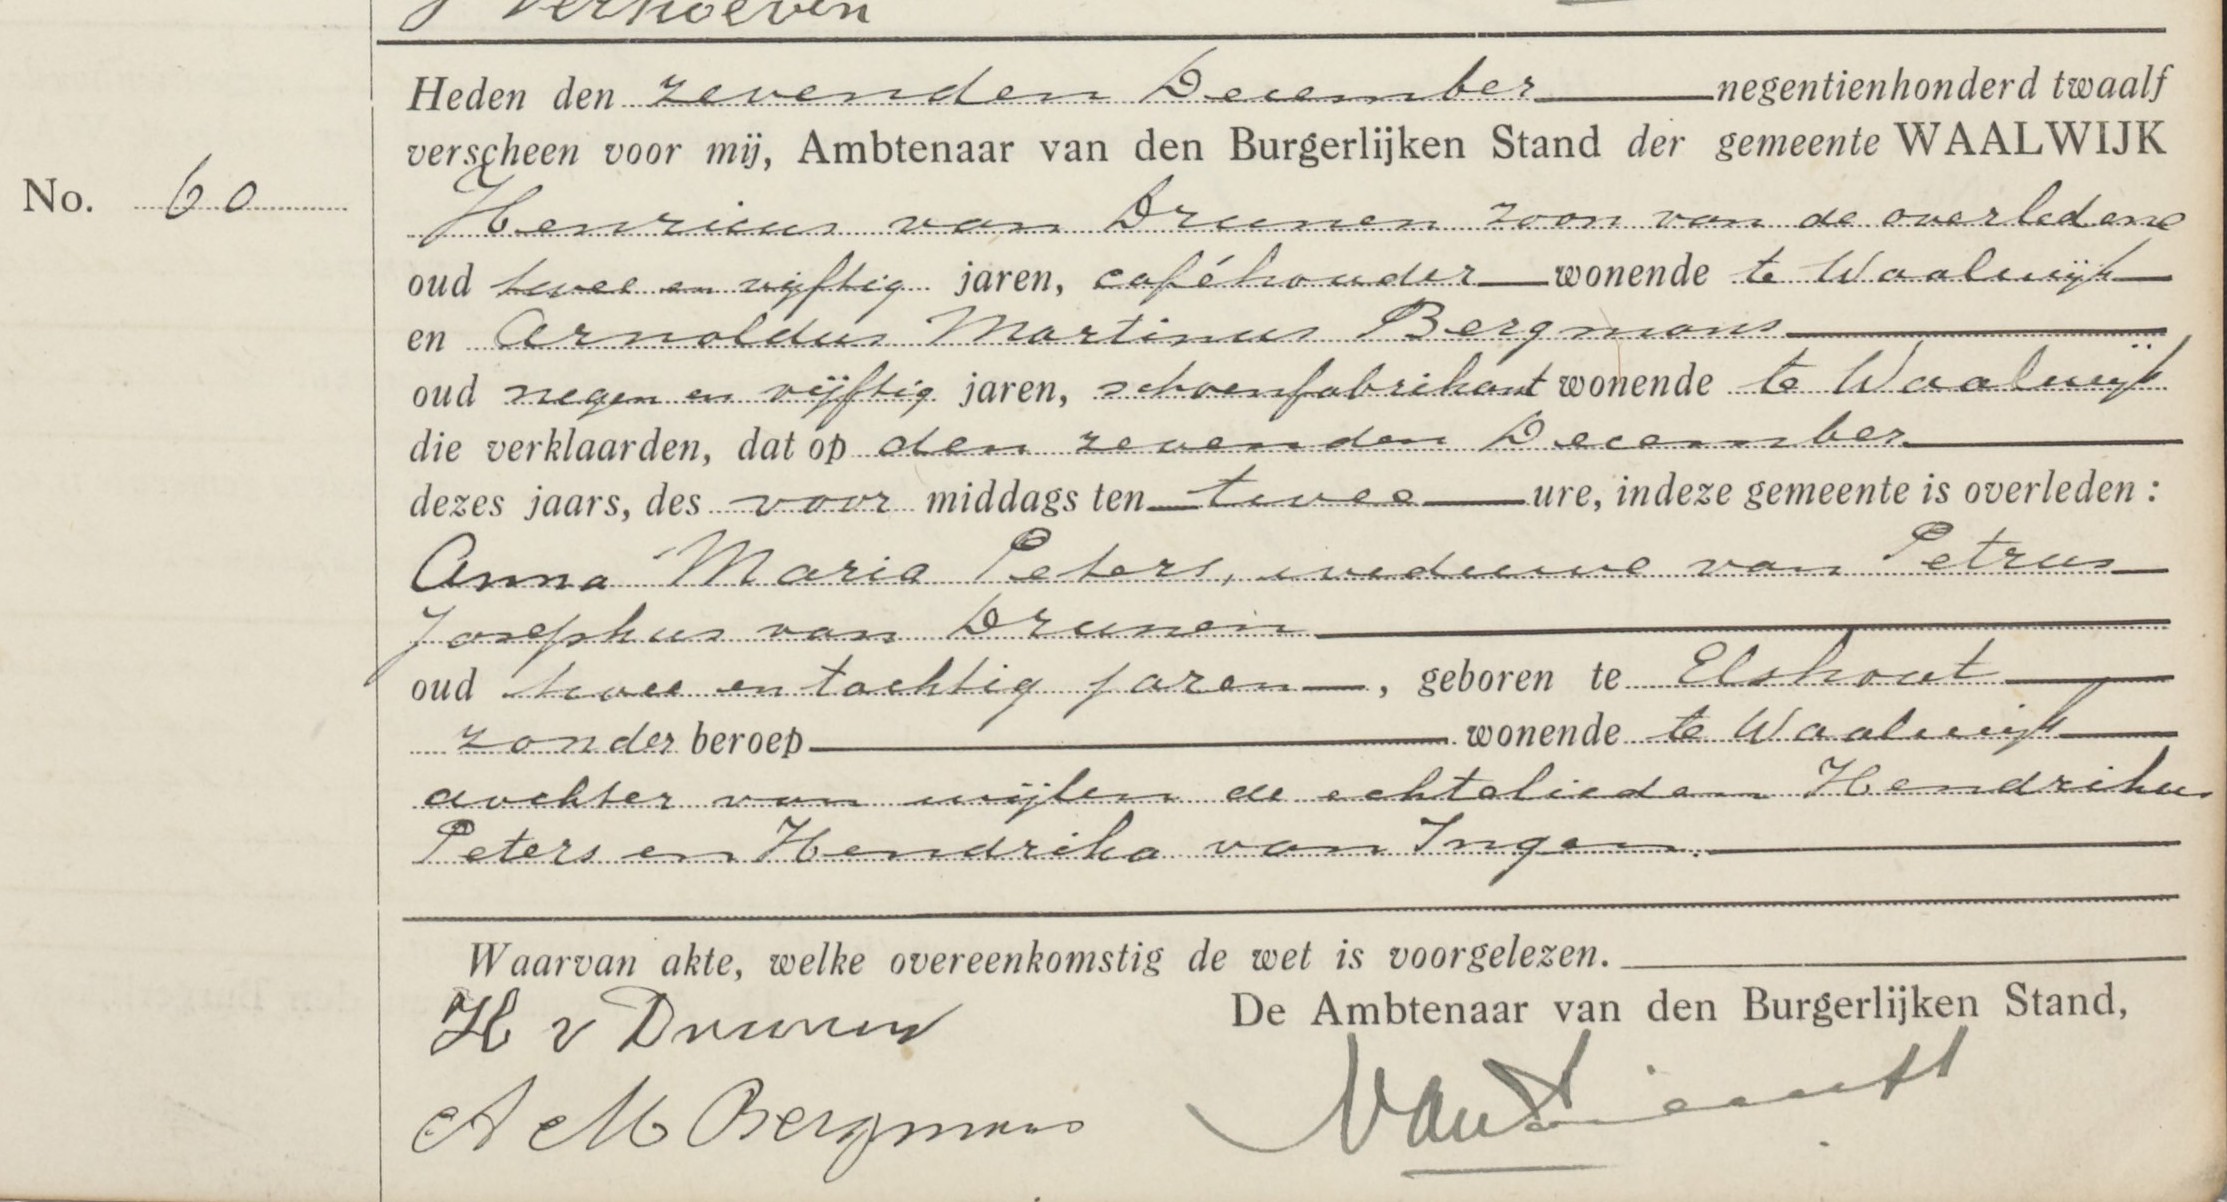 J Verhoeven
Heden den zevenden December negentienhonderd twaalf
verscheen voor mij, Ambtenaar van den Burgerlijken Stand der gemeente WAALWIJK
No. 60
Henricus van Drunen zoon van de overledene
oud twee en vijftig jaren, caféhouder wonende te Waalwijk
en Arnoldus Martinus Bergmans
oud negen en vijftig jaren, schoenfabrikant wonende te Waalwijk
die verklaarden, dat op den zevenden December
dezes jaars, des voor middags ten twee ure, in deze gemeente is overleden:
Anna Maria Peters, weduwe van Petrus
Josephus van Drunen
oud twee en tachtig jaren, geboren te Elshout
zonder beroep wonende te Waalwijk
dochter van wijlen de echtelieden Hendrikus
Peters en Hendrika van Ingen.
Waarvan akte, welke overeenkomstig de wet is voorgelezen.
De Ambtenaar van den Burgerlijken Stand,
H v Drunen
A M Bergmans